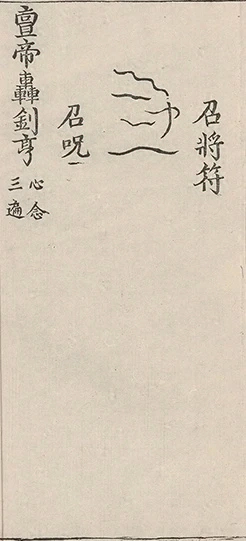 召將符
召呪
亶帝轟釗亨
心念
三遍